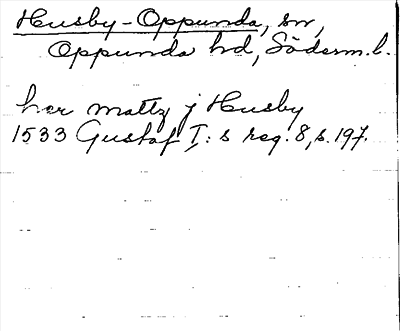 Husby-Oppunda, sn,
Oppunda hd, Söderm.l.
her mattz j Husby
1533 Gustaf I:s reg. 8, s. 197.